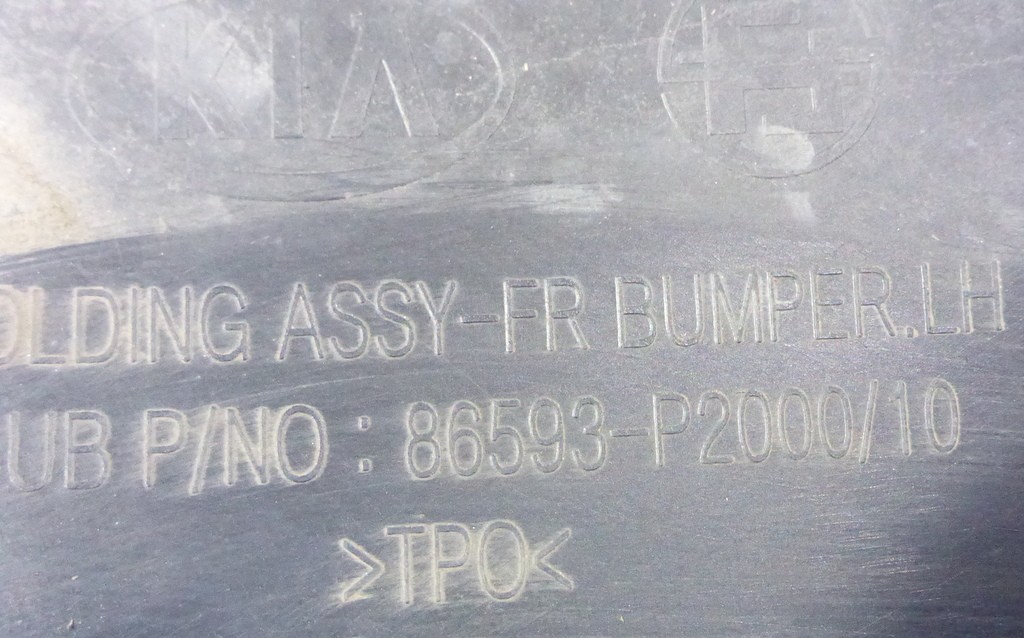 KIA
OLDING ASSY-FR BUMPER.LH
UB P/NO : 86593-P2000/10
>TPO<